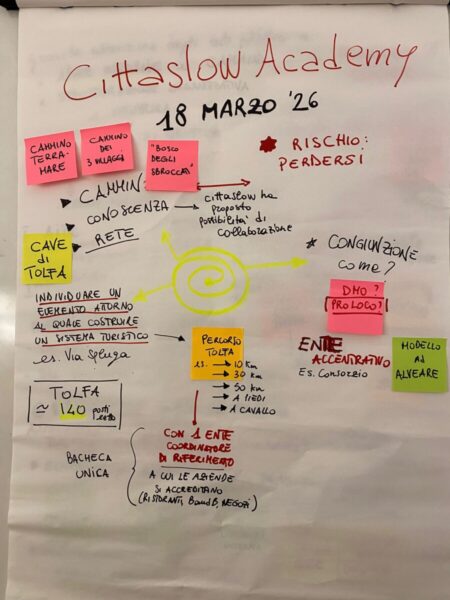 Cittaslow Academy
18 MARZO '26
CAMMINO
TERRA-
MARE
CAMMINO
DEI
3 VILLAGGI
"BOSCO
DEGLI
SBROCCATI"
RISCHIO:
PERDERSI
CAMMINI
CONOSCENZA
RETE
cittaslow ha
proposto
possibilità di
collaborazione
CAVE
di
TOLFA
* CONGIUNZIONE
come?
DMO?
(PRO LOCO?)
ENTE
ACCENTRATIVO
Es. Consorzio
MODELLO
AD
ALVEARE
INDIVIDUARE UN
ELEMENTO ATTORNO
AL QUALE COSTRUIRE
UN SISTEMA TURISTICO
es. Via Spluga
PERCORSO
TOLFA
es. → 10 Km
→ 30 Km
→ 50 Km
→ A PIEDI
→ A CAVALLO
TOLFA
≈ 140 posti
letto
CON 1 ENTE
COORDINATORE
DI RIFERIMENTO
BACHECA
UNICA
A CUI LE AZIENDE
SI ACCREDITANO
(RISTORANTI, BandB, NEGOZI)